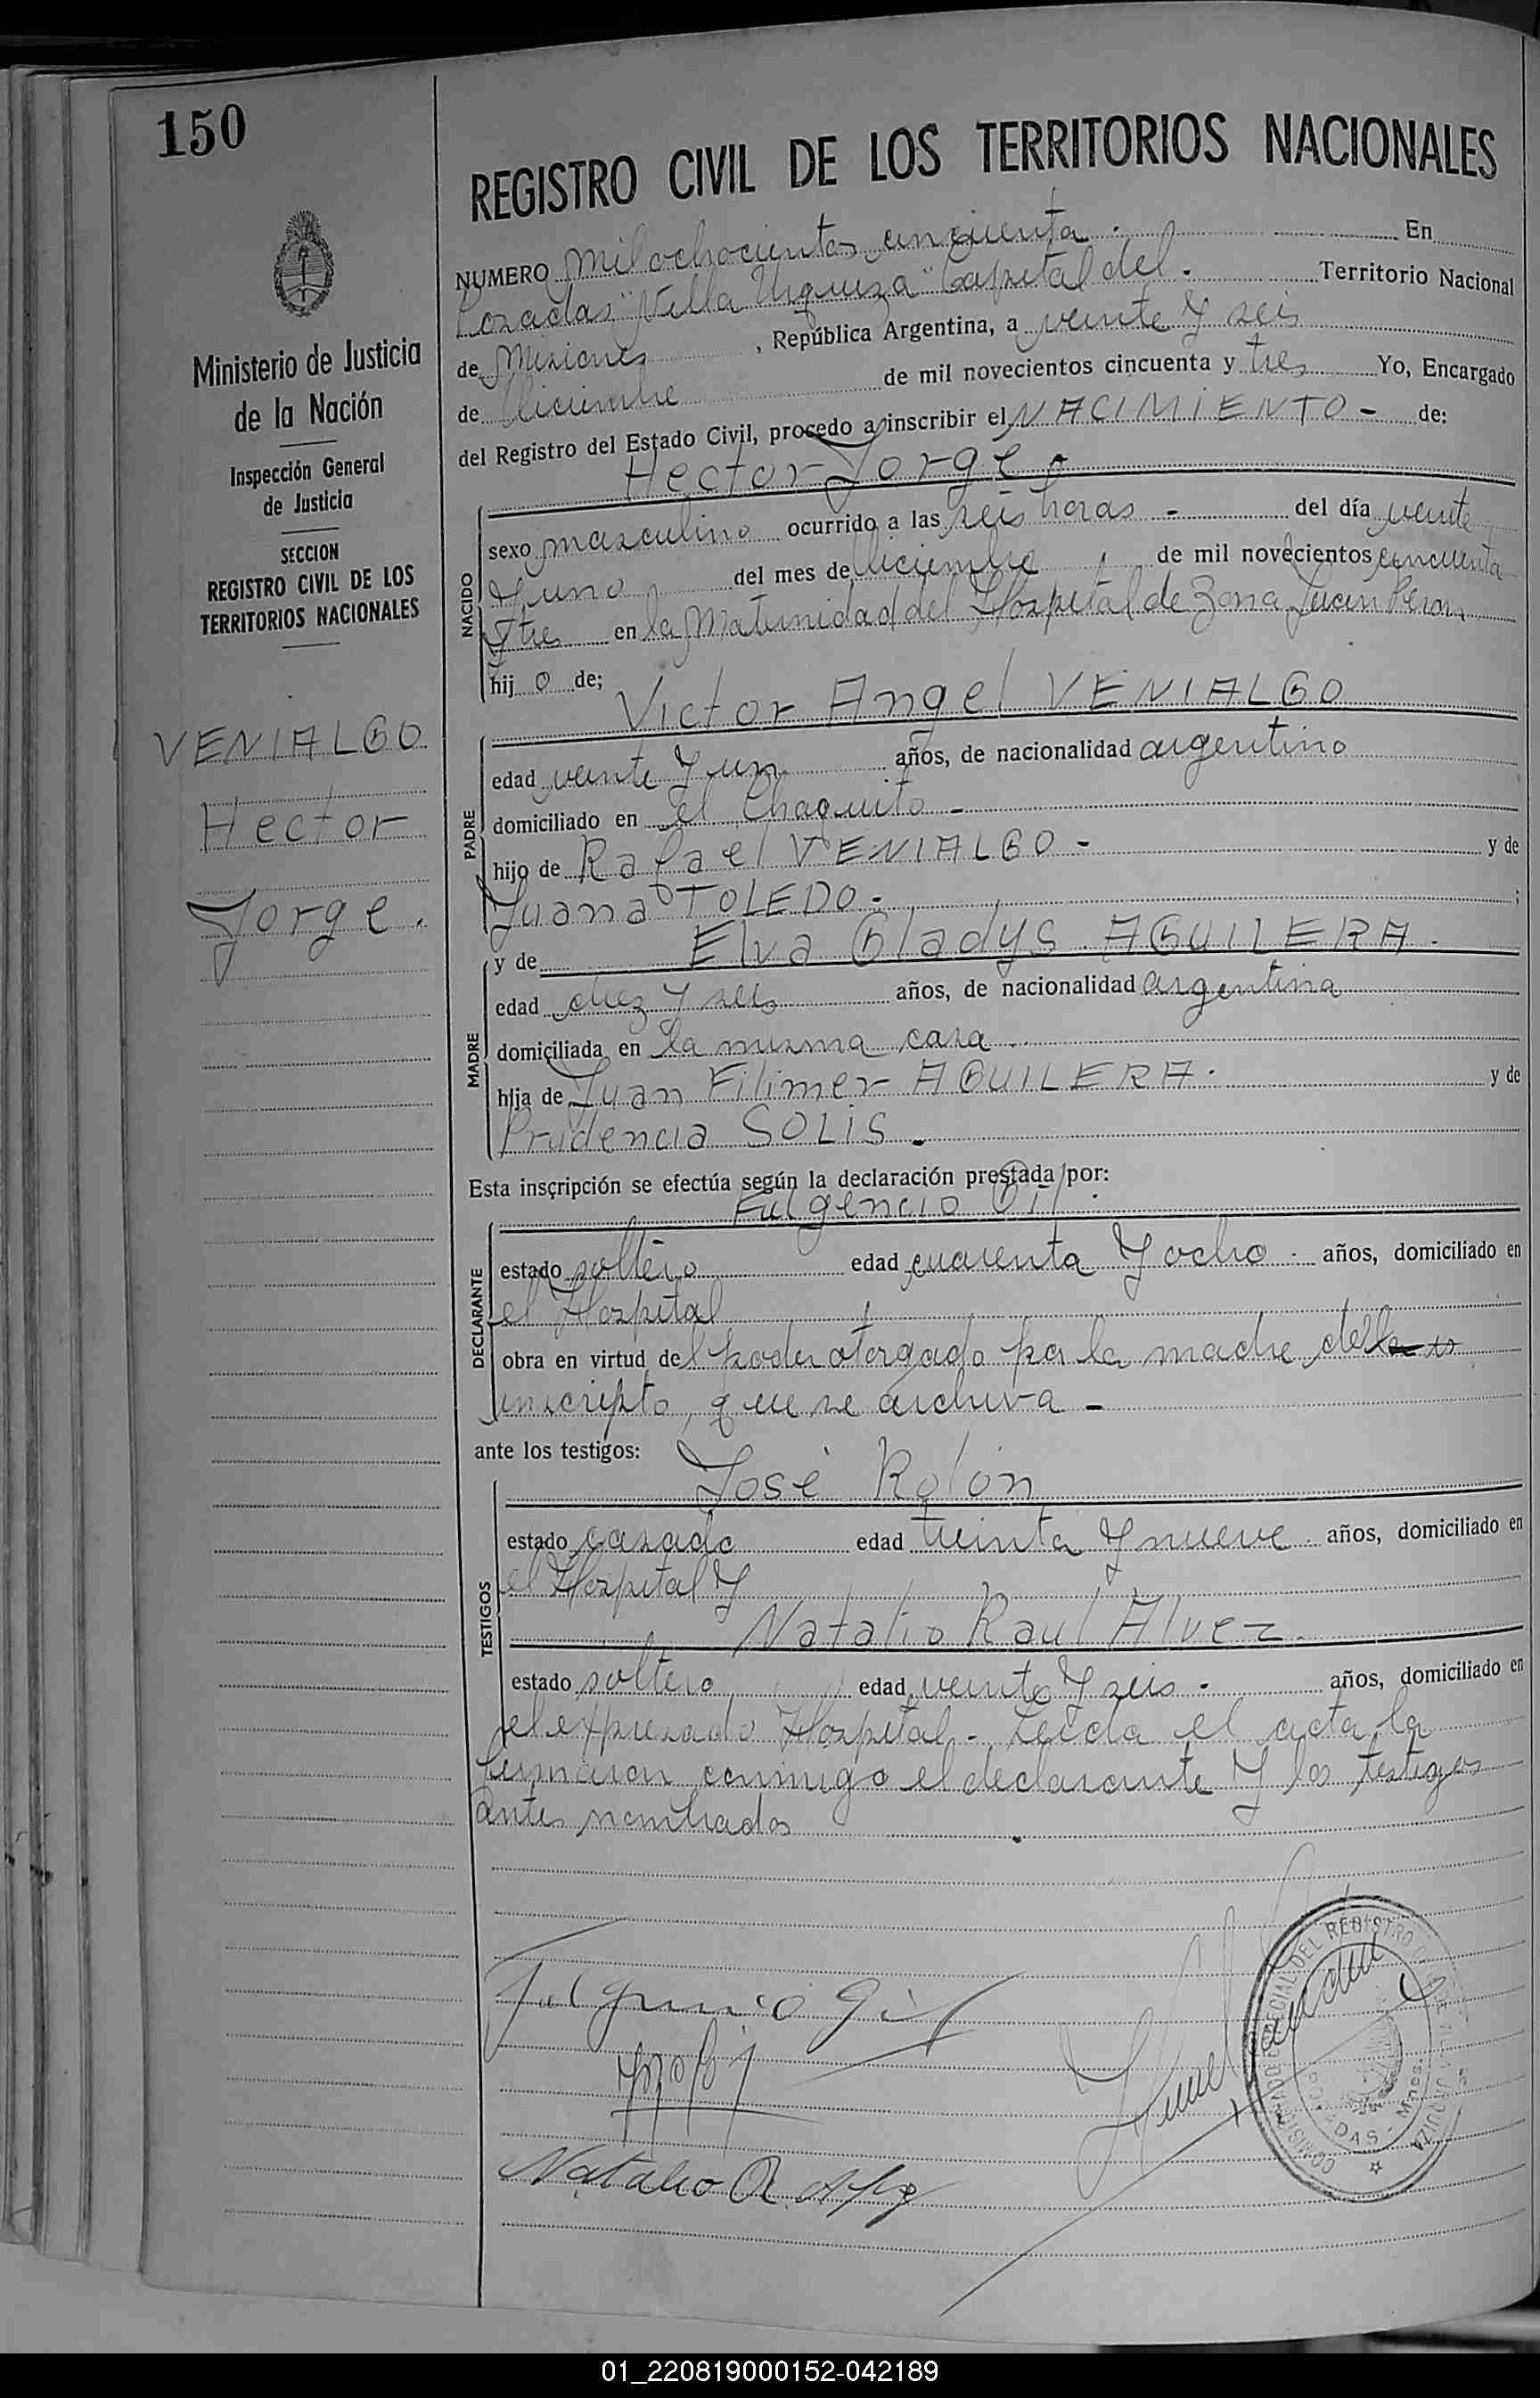 150
Ministerio de Justicia
de la Nación
Inspección General
de Justicia
SECCION
REGISTRO CIVIL DE LOS
TERRITORIOS NACIONALES
VENIALGO
Hector
Jorge.
REGISTRO CIVIL DE LOS TERRITORIOS NACIONALES
NUMERO mil ochocientos cincuenta. En
Posadas "Villa Urquiza" Capital del. Territorio Nacional
de Misiones, República Argentina, a veinte y seis
de Diciembre de mil novecientos cincuenta y tres Yo, Encargado
del Registro del Estado Civil, procedo a inscribir el NACIMIENTO - de:
Hector Jorge.
NACIDO
sexo masculino ocurrido a las seis horas - del día veinte
y uno del mes de Diciembre de mil novecientos cincuenta
y tres en la Maternidad del Hospital de Zona Juan Peron,
hij o de;
Victor Angel VENIALGO
PADRE
edad veinte y un años, de nacionalidad argentino
domiciliado en el Chaquito -
hijo de Rafael VENIALGO - y de
Juana TOLEDO - ;
y de Elva Gladys AGUILERA.
MADRE
edad diez y seis años, de nacionalidad argentina
domiciliada en la misma casa.
hija de Juan Filimer AGUILERA. y de
Prudencia SOLIS.
Esta inscripción se efectúa según la declaración prestada por:
Fulgencio Gil.
DECLARANTE
estado soltero edad cuarenta y ocho. años, domiciliado en
el Hospital
obra en virtud del poder otorgado por la madre del
inscripto, que se archiva -
ante los testigos:
José Rolón
TESTIGOS
estado casado edad treinta y nueve. años, domiciliado en
el Hospital y
Natalio Raul Alvez.
estado soltero edad veinte y seis - años, domiciliado en
el expresado Hospital - Leida el acta, la
firmaron conmigo el declarante y los testigos
antes nombrados
Fulgencio Gil
Natalio R. Alvez
POSADAS - Mnes.
01_220819000152-042189